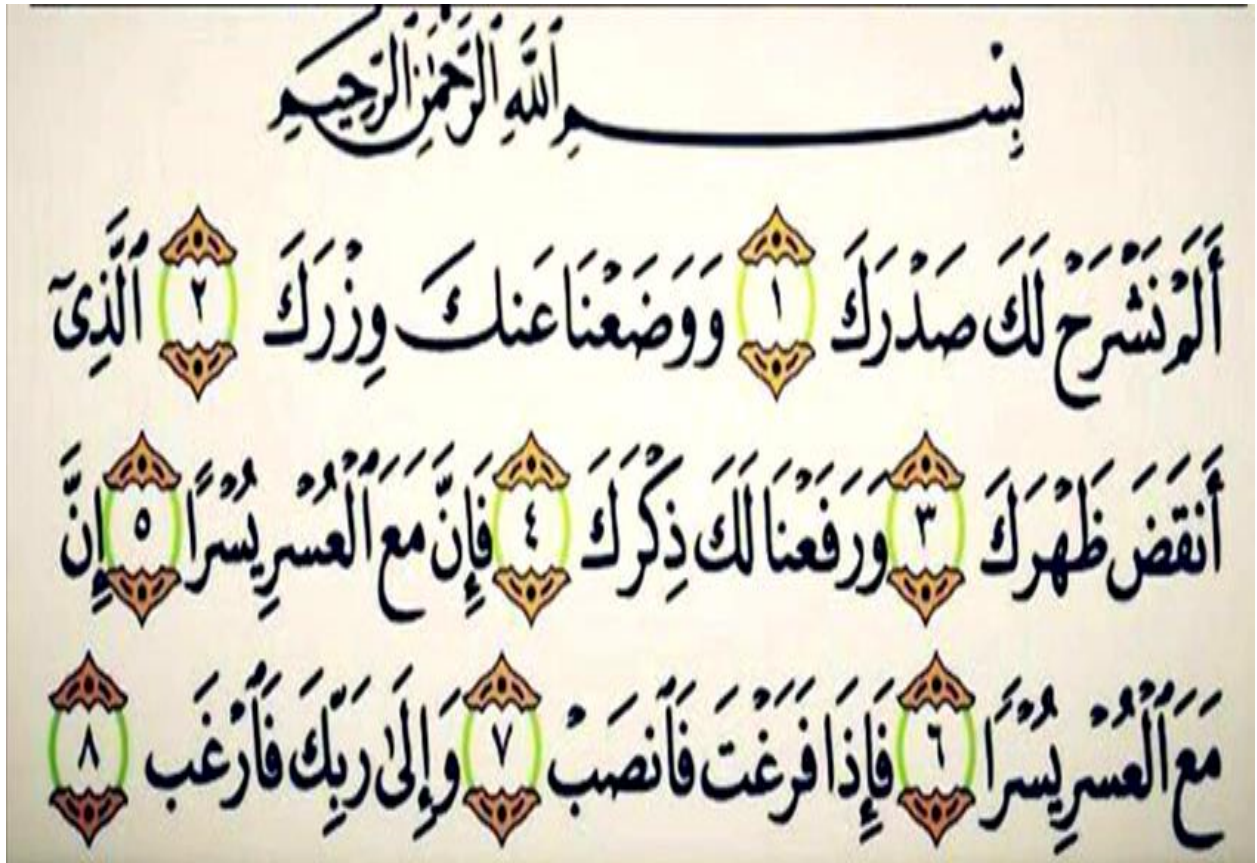 بِسْمِ ٱللَّهِ ٱلرَّحْمَٰنِ ٱلرَّحِيمِ
أَلَمْ نَشْرَحْ لَكَ صَدْرَكَ ١ وَوَضَعْنَا عَنكَ وِزْرَكَ ٢ ٱلَّذِىٓ
أَنقَضَ ظَهْرَكَ ٣ وَرَفَعْنَا لَكَ ذِكْرَكَ ٤ فَإِنَّ مَعَ ٱلْعُسْرِ يُسْرًا ٥ إِنَّ
مَعَ ٱلْعُسْرِ يُسْرًا ٦ فَإِذَا فَرَغْتَ فَٱنصَبْ ٧ وَإِلَىٰ رَبِّكَ فَٱرْغَب ٨